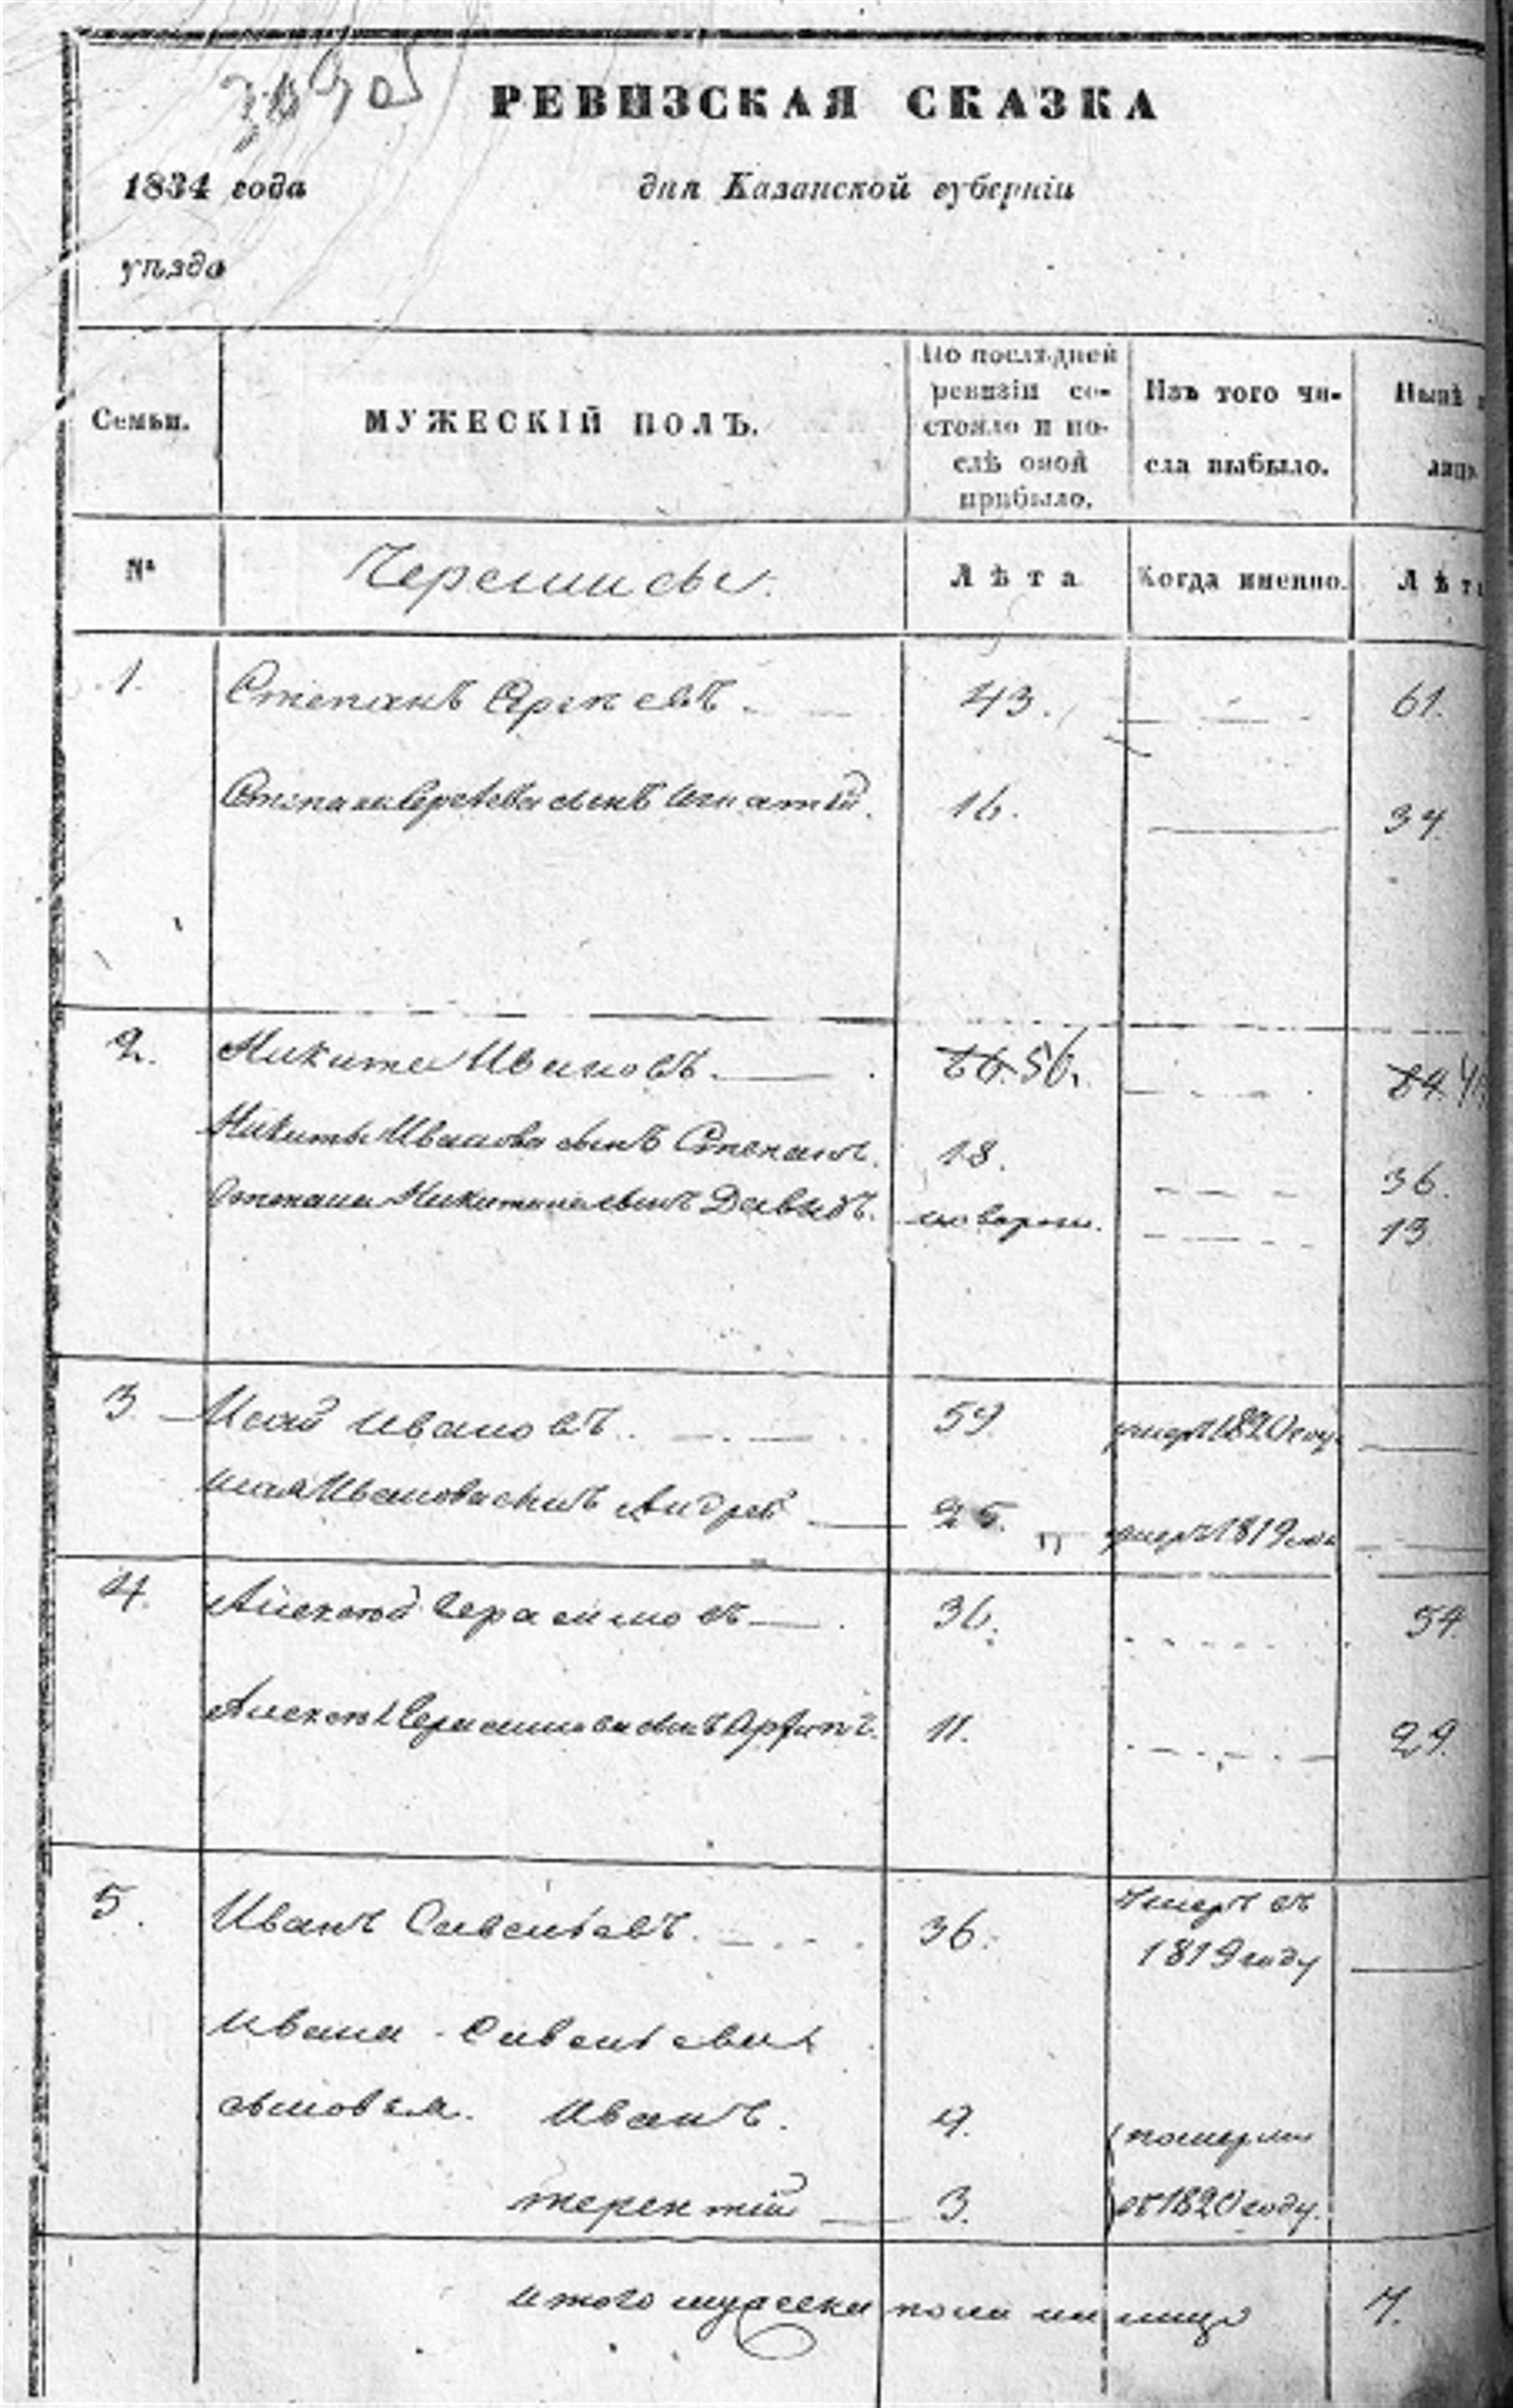 РЕВИЗСКАЯ СКАЗКА
1834 года дня Казанской губерніи
уѣзда
Семьи.
МУЖЕСКІЙ ПОЛЪ.
По послѣдней
ревизіи со-
стояло и по-
слѣ оной
прибыло.
Изъ того чи-
сла выбыло.
Нынѣ
лицо
№ Черемисы. Лѣта Когда именно. Лѣт
1. Степанъ 43. 61.
Степана сынъ Игнатій. 16. 34.
2. Никита Ивановъ. 56.
Никиты Иванова сынъ Степанъ. 18. 36.
Степана Никитина сынъ Давыдъ. 13.
3 Исай Ивановъ. 59. умеръ 1820 году
Исая Иванова сынъ Андрей 25. умеръ 1819 года
4. Алексѣй Герасимовъ 36. 54.
Алексѣя Герасимова сынъ 11. 29.
5. Иванъ Савельевъ. 36. Умеръ въ
1819 году
Ивана Савельева
сыновья. Иванъ. 9. померли
терентій 3. въ 1820 году.
итого мужеска пола на лицо 7.